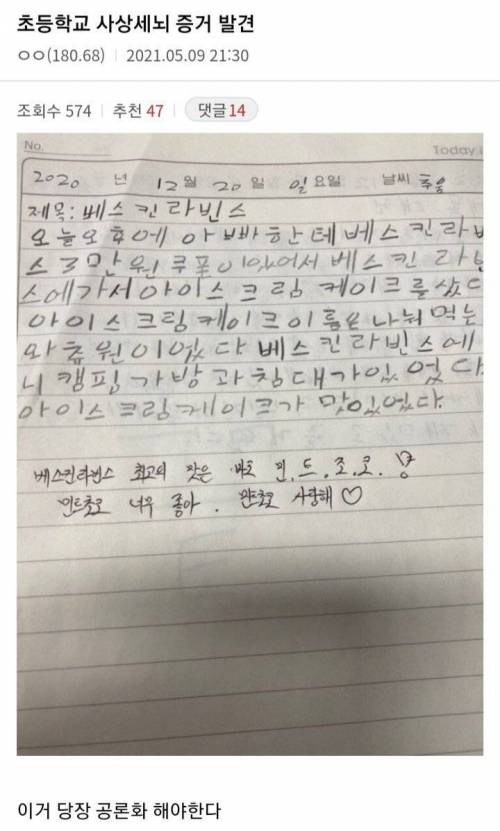 초등학교 사상세뇌 증거 발견
ㅇㅇ(180.68) 2021.05.09 21:30
조회수 574 추천 47 댓글 14
No. Today
2020 년 12월 20일 일요일 날씨 추움
제목: 베스킨라빈스
오늘오후에 아빠한테베스킨라빈
스3만원쿠폰이있어서 베스킨라빈
스에가서아이스크림 케이크를샀다
아이스크림케이크이름은 나눠먹는
와츄원이였다 베스킨라빈스에
니 캠핑가방과침대가있었다.
아이스크림케이크가 맛있었다.
베스킨라빈스 최고의 맛은 바로 민.트.초.코.
민트초코 너무 좋아. 민트초코 사랑해♡
이거 당장 공론화 해야한다